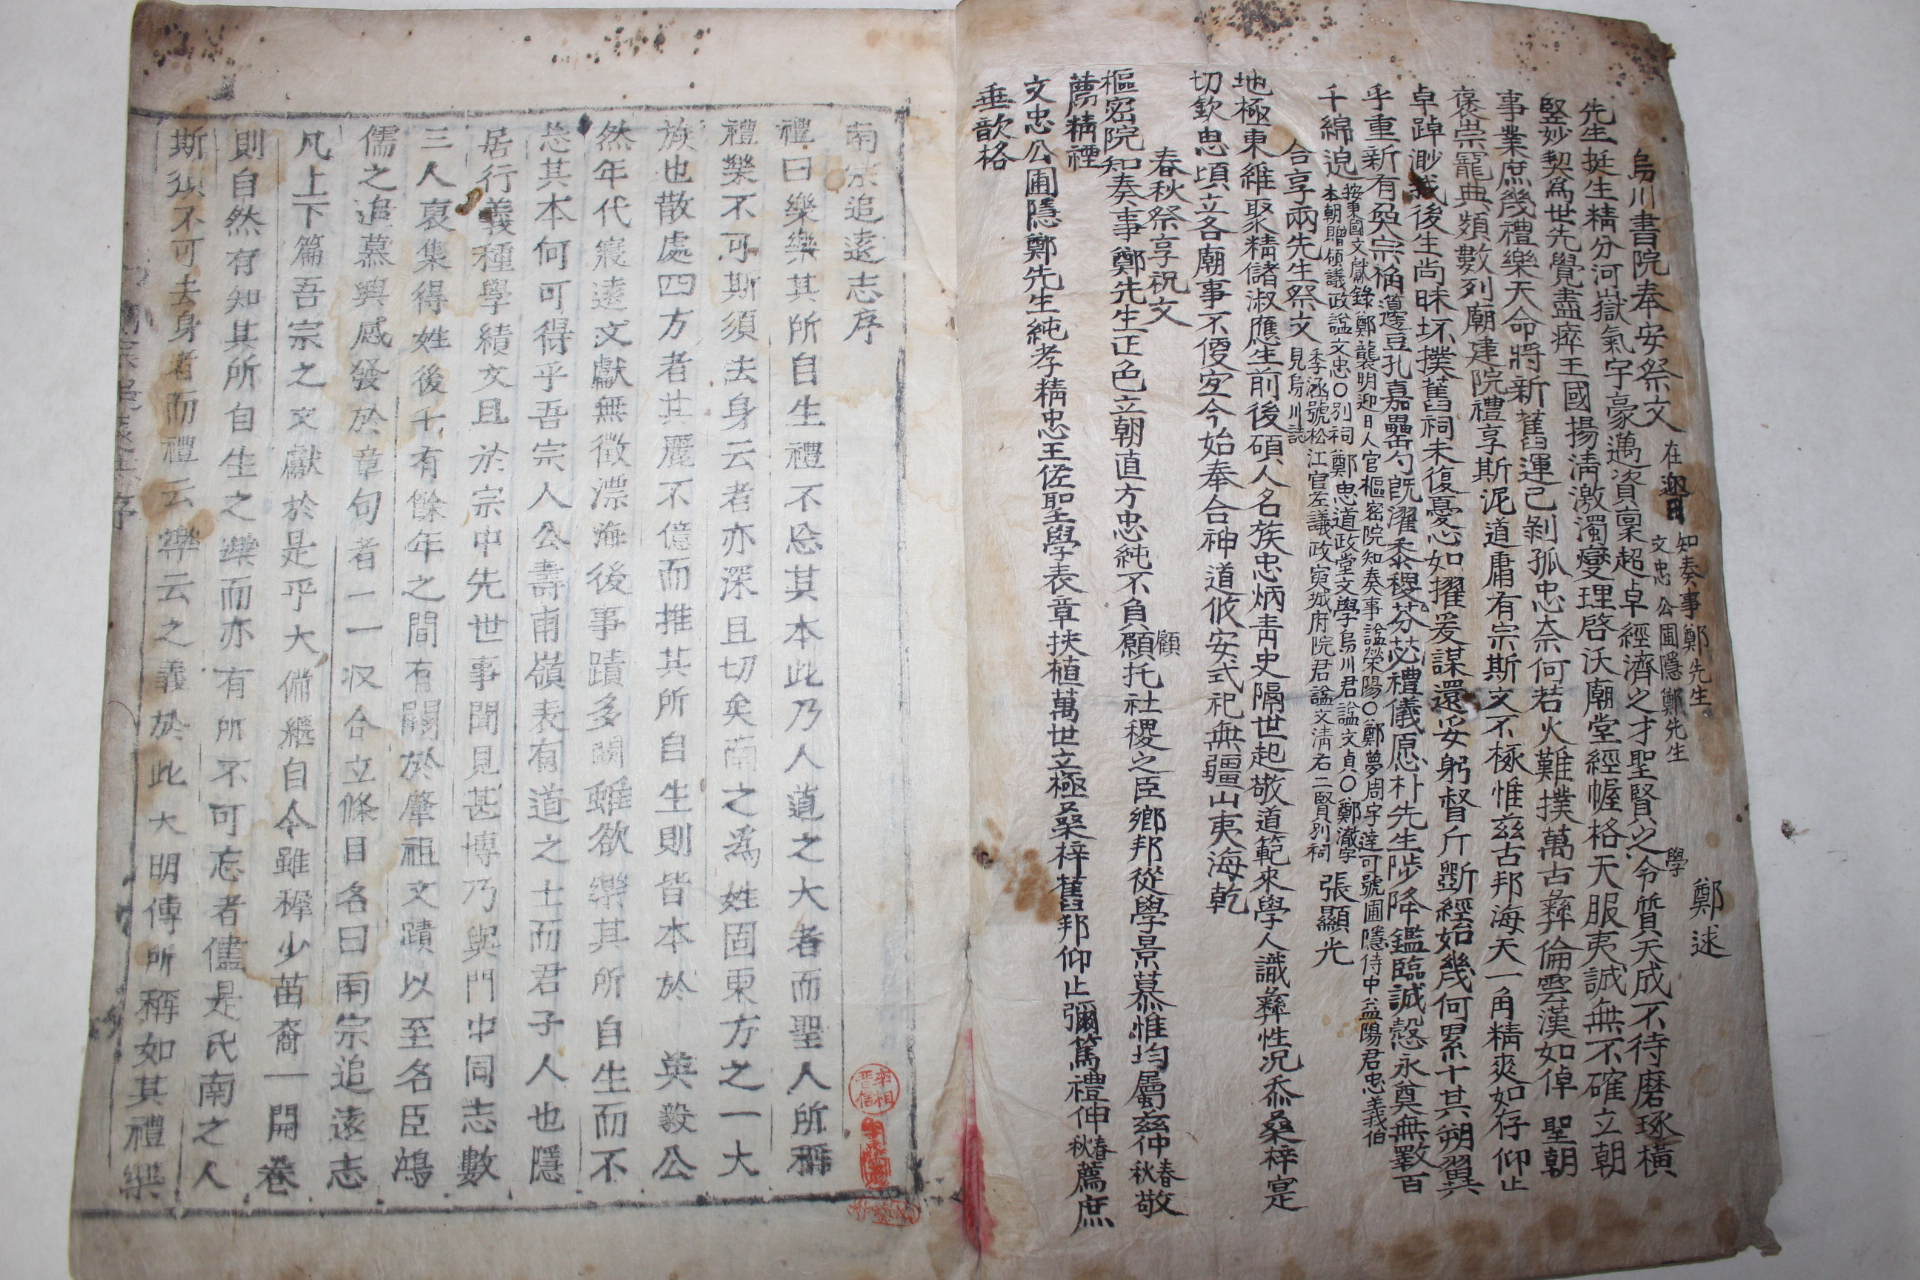 烏川書院奉安祭文 在迎日 知奏事鄭先生 文忠公圃隱鄭先生 鄭逑
先生挺生精分河嶽氣宇豪邁資稟超卓經濟之才聖賢之學令質天成不待磨琢橫
竪妙契爲世先覺盡瘁王國揚淸激濁燮理啓沃廟堂經幄格天服夷誠無不確立朝
事業庶幾禮樂天命將新舊運已剝孤忠奈何若火難撲萬古彝倫雲漢如倬 聖朝
褒崇寵典頻數列廟建院禮享斯泥道庸有宗斯文不椓惟玆古邦海天一角精爽如存仰止
卓踔渺我後生尚昧坏撲舊祠未復憂心如擢爰謀還妥躬督斤斲經始幾何累十其朔翼
乎重新有奐宗桷籩豆孔嘉罍勺旣濯黍稷芬苾禮儀愿朴先生陟降鑑臨誠慤永奠無斁百
千綿邈 按東國文獻錄鄭襲明迎日人官樞密院知奏事諡榮陽○鄭夢周字達可號圃隱侍中益陽君忠義伯
本朝贈領議政諡文忠○別祠鄭思道政堂文學烏川君諡文貞○鄭澈字
季涵號松江官左議政寅城府院君諡文淸右二賢別祠
合享兩先生祭文 見烏川誌 張顯光
地極東維聚精儲淑應生前後碩人名族忠炳靑史隔世起敬道範來學人識彝性況忝桑梓寔
切欽思頃立各廟事不便安今始奉合神道攸安式祀無疆山夷海乾
春秋祭享祝文
樞密院知奏事鄭先生正色立朝直方忠純不負顧托社稷之臣鄉邦從學景慕惟均屬玆仲春秋敬
薦精禋
文忠公圃隱鄭先生純孝精忠王佐聖學表章挾植萬世立極桑梓舊邦仰止彌篤禮伸春秋薦庶
垂歆格
南宗追遠志序
禮曰樂樂其所自生禮不忘其本此乃人道之大者而聖人所稱
禮樂不可斯須去身云者亦深且切矣南之爲姓固東方之一大
族也散處四方者其麗不億而推其所自生則皆本於 英毅公
然年代寢遠文獻無徵漂海後事蹟多闕雖欲樂其所自生而不
忘其本何可得乎吾宗人公壽甫嶺表有道之士而君子人也隱
居行義種學績文且於宗中先世事聞見甚博乃與門中同志數
三人裒集得姓後千有餘年之間有關於肇祖文蹟以至名臣鴻
儒之追慕興感發於章句者一一收合立條目名曰南宗追遠志
凡上下篇吾宗之文獻於是乎大備繼自今雖穉少苗裔一開卷
則自然有知其所自生之樂而亦有所不可忘者儘是氏南之人
斯須不可去身者而禮云樂云之義於此大明傳所稱如其禮樂
南宗追遠志序